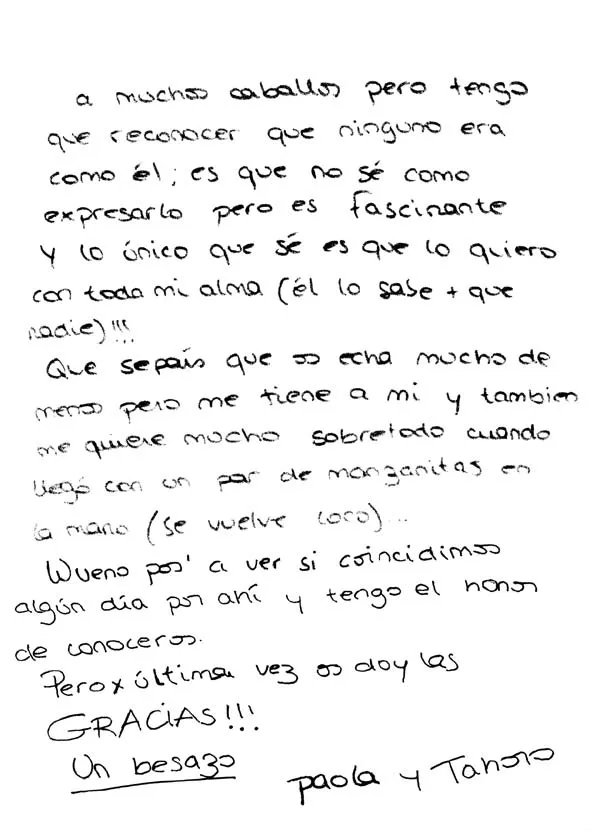 a muchos caballos pero tengo
que reconocer que ninguno era
como él; es que no sé como
expresarlo pero es fascinante
y lo único que sé es que lo quiero
con toda mi alma (él lo sabe + que
nadie)!!!
Que sepaís que os echa mucho de
menos pero me tiene a mi y tambien
me quiere mucho sobretodo cuando
llegó con un par de manzanitas en
la mano (se vuelve loco)...
Wueno pos' a ver si coincidimos
algún día por ahí y tengo el honor
de conoceros.
Pero x última vez os doy las
GRACIAS!!!
Un besazo
paola y Tanoro